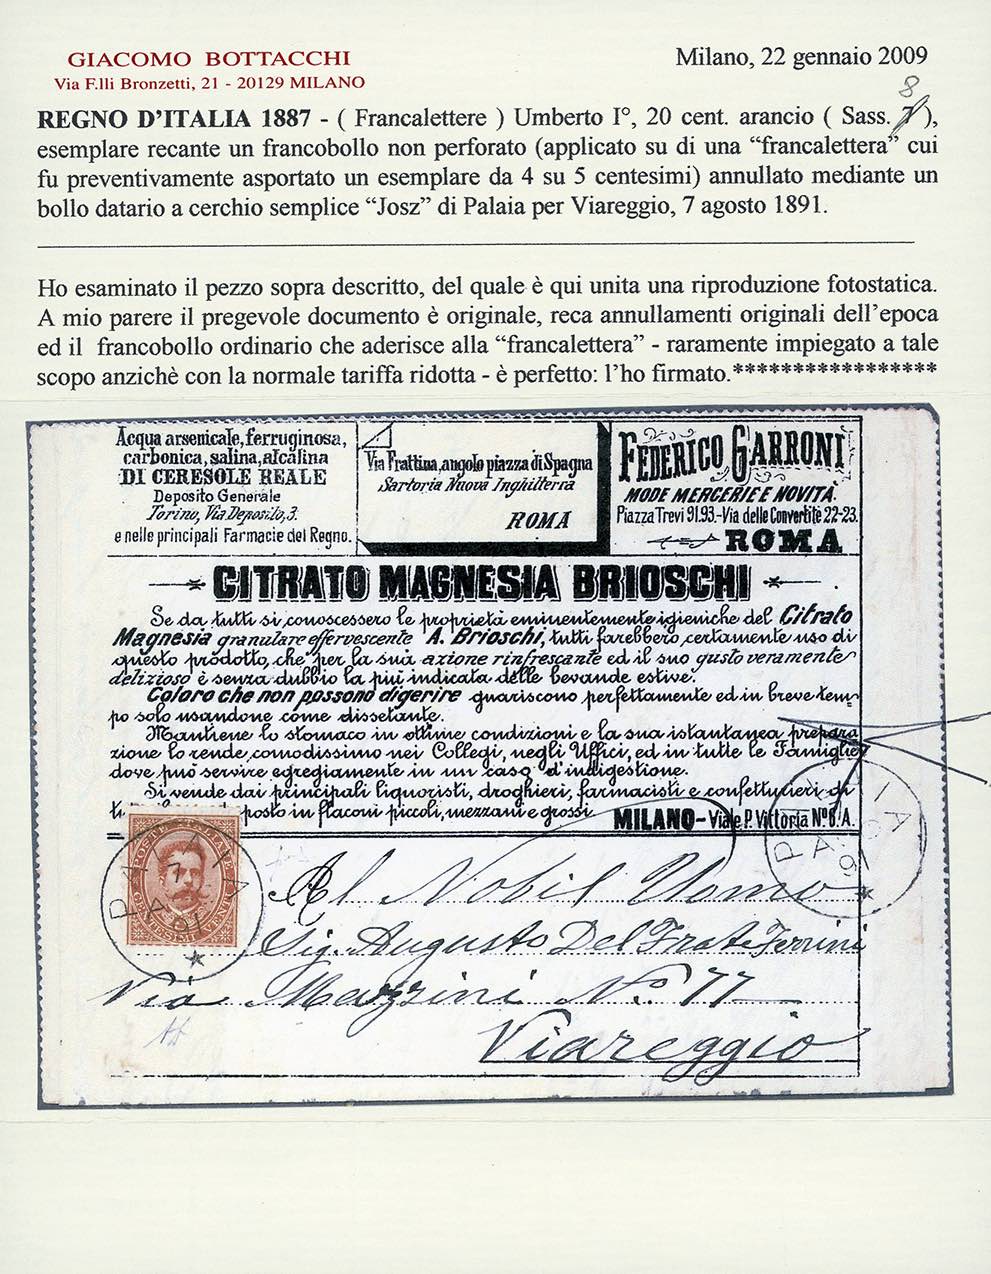 GIACOMO BOTTACCHI
Via F.lli Bronzetti, 21 - 20129 MILANO
Milano, 22 gennaio 2009
8
REGNO D'ITALIA 1887 - ( Francalettere ) Umberto I°, 20 cent. arancio ( Sass. 7 ),
esemplare recante un francobollo non perforato (applicato su di una “francalettera” cui
fu preventivamente asportato un esemplare da 4 su 5 centesimi) annullato mediante un
bollo datario a cerchio semplice “Josz” di Palaia per Viareggio, 7 agosto 1891.
Ho esaminato il pezzo sopra descritto, del quale è qui unita una riproduzione fotostatica.
A mio parere il pregevole documento è originale, reca annullamenti originali dell’epoca
ed il francobollo ordinario che aderisce alla “francalettera” - raramente impiegato a tale
scopo anzichè con la normale tariffa ridotta - è perfetto: l’ho firmato.*****************
Acqua arsenicale, ferruginosa,
carbonica, salina, alcalina
DI CERESOLE REALE
Deposito Generale
Torino, Via Deposito, 3.
e nelle principali Farmacie del Regno.
Via Frattina, angolo piazza di Spagna
Sartoria Nuova Inghilterra
ROMA
FEDERICO GARRONI
MODE MERCERIE E NOVITÀ
Piazza Trevi 91.93.-Via delle Convertite 22-23.
ROMA
CITRATO MAGNESIA BRIOSCHI
Se da tutti si conoscessero le proprietà eminentemente igieniche del Citrato
Magnesia granulare effervescente A. Brioschi, tutti farebbero certamente uso di
questo prodotto, che per la sua azione rinfrescante ed il suo gusto veramente
delizioso è senza dubbio la più indicata delle bevande estive.
Coloro che non possono digerire guariscono perfettamente ed in breve tem-
po solo usandone come dissetante.
Mantiene lo stomaco in ottime condizioni e la sua istantanea prepara
zione lo rende comodissimo nei Collegi, negli Uffici, ed in tutte le Famiglie
dove può servire egregiamente in un caso d'indigestione.
Si vende dai principali liquoristi, droghieri, farmacisti e confettieri di
posto in flaconi piccoli, mezzani e grossi
MILANO - Viale P. Vittoria N° 8. A.
POSTE ITALIANE
CENTESIMI VENTI
PALAIA
7
A
91
PALAIA
A
91
Al Nobil Uomo
Sig. Augusto Del Frate Ferrini
Via Mazzini N.° 77
Viareggio